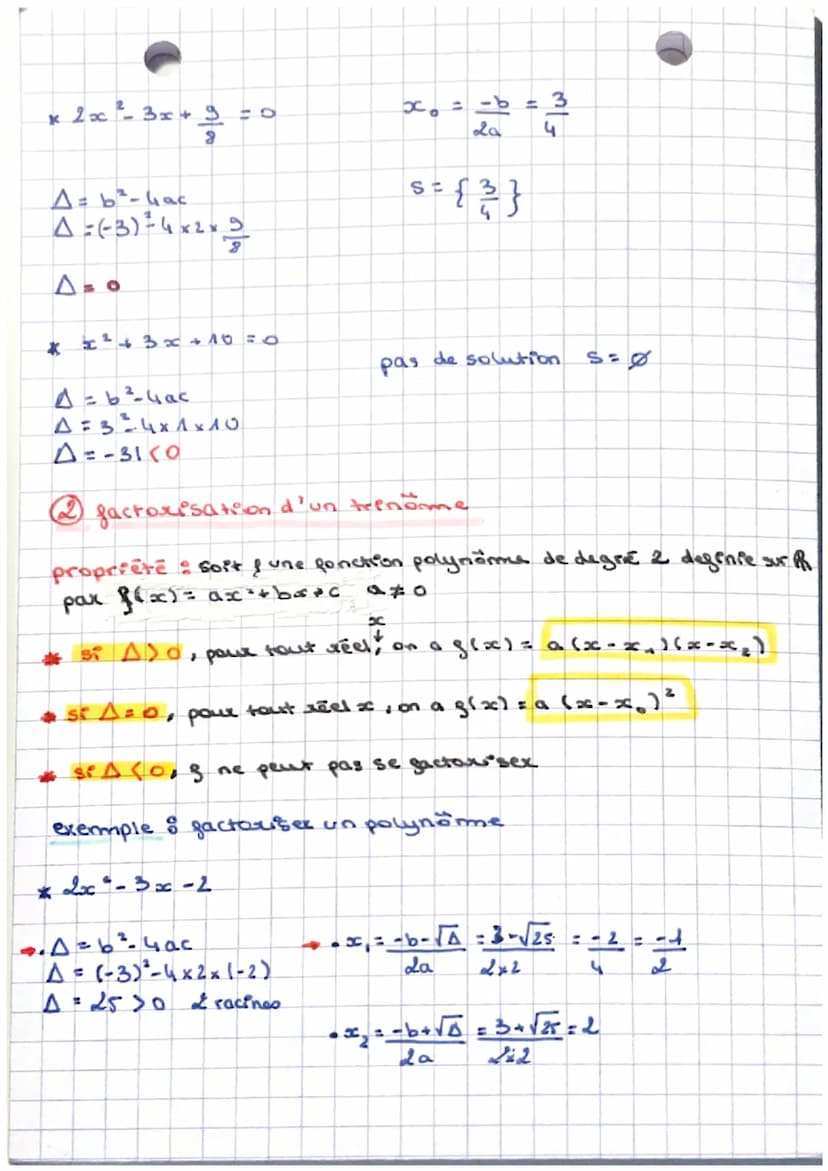 * 2x² - 3x + 9/8 = 0
x₀ = -b/2a = 3/4
Δ = b² - 4ac
S = { 3/4 }
Δ = (-3)² - 4 x 2 x 9/8
Δ = 0
* x² + 3x + 10 = 0
pas de solution S = ∅
Δ = b² - 4ac
Δ = 3² - 4 x 1 x 10
Δ = -31 < 0
② factorisation d'un trinôme
propriété : soit f une fonction polynôme de degré 2 definie sur ℝ
par f(x) = ax² + bx + c a ≠ 0
* si Δ > 0, pour tout réel x, on a f(x) = a (x - x₁) (x - x₂)
* si Δ = 0, pour tout réel x, on a f(x) = a (x - x₀)²
* si Δ < 0, f ne peut pas se factoriser
exemple : factoriser un polynôme
* 2x² - 3x - 2
→ • Δ = b² - 4ac
Δ = (-3)² - 4 x 2 x (-2)
Δ = 25 > 0 2 racines
→ • x₁ = -b-√Δ/2a = 3-√25/2x2 = -2/4 = -1/2
• x₂ = -b+√Δ/2a = 3+√25/2x2 = 2